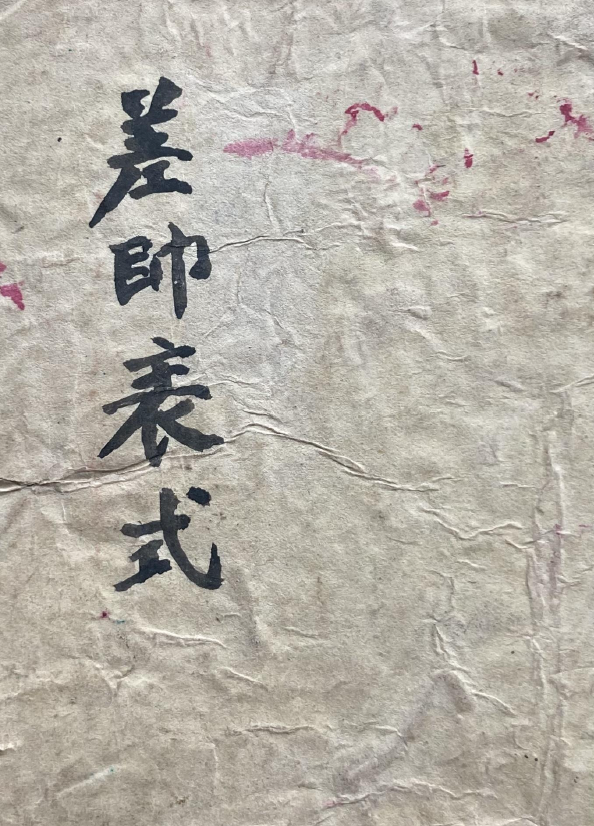 差帥表式